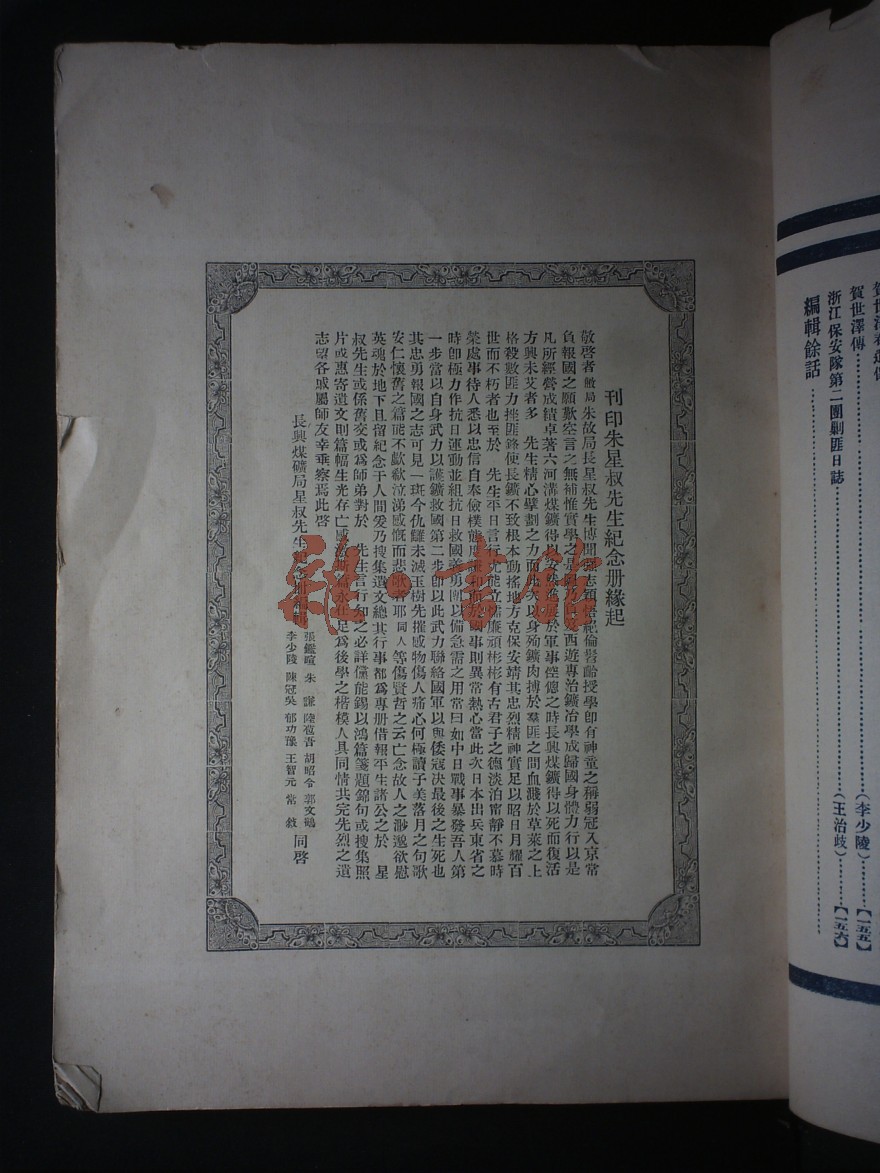 賀世澤傳………………（李少陵）………【一五五】
浙江保安隊第二團剿匪日誌………………（王治歧）………【一五六】
編輯餘話………………
刊印朱星叔先生紀念册緣起
敬啓者敝局朱故局長星叔先生博聞强志穎悟絕倫髫齡授學即有神童之稱弱冠入京常
負報國之願歉空言之無補惟實學之是 西遊專治鑛冶學成歸國身體力行以是
凡所經營成績卓著六河溝煤鑛得以安然進展於軍事倥傯之時長興煤鑛得以死而復活
方興未艾者多 先生精心擘劃之力而此次以身殉鑛肉搏於羣匪之間血濺於草萊之上
格殺數匪力挫匪鋒使長鑛不致根本動搖地方克保安靖其忠烈精神實足以昭日月耀百
世而不朽者也至於 先生平日言行尤能立懦廉頑彬彬有古君子之德淡泊甯靜不慕時
榮處事待人悉以忠信自奉儉樸態度謙和而於國事則異常熱心當此次日本出兵東省之
時即極力作抗日運動並組抗日救國義勇團以備急需之用常曰如中日戰事暴發吾人第
一步當以自身武力以護鑛救國第二步即以此武力聯絡國軍以與倭寇決最後之生死也
其忠勇報國之志可見一斑今仇讎未滅玉樹先摧感物傷人痛心何極讀子美落月之句歌
安仁懷舊之篇能不歔欷泣涕感慨而悲歌者耶同人等傷賢哲之云亡念故人之渺邈欲慰
英魂於地下且留紀念于人間爰乃搜集遺文總其行事都為專册借報平生諸公之於 星
叔先生或係舊交或為師弟對於 先生言行知之必詳儻能錫以鴻篇箋題錦句或搜集照
片或惠寄遺文則篇幅生光存亡感激斯篇永在足為後學之楷模人具同情共完先烈之遺
志望各城屬師友幸垂察焉此啓
長興煤礦局星叔先生紀念册編輯 張鑑暄 朱 謙 陸宧吾 胡昭令 郭文鵷
李少陵 陳冠吳 郁功璪 王智元 常 敘 同啓